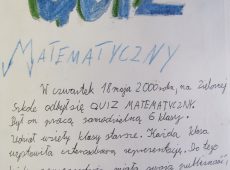 QUIZ
MATEMATYCZNY
W czwartek 18 maja 2000 roku, na Zielonej
Szkole odbył się QUIZ MATEMATYCZNY.
Był on pracą samodzielną 6 klasy.
Udział wzięły klasy starsze. Każda klasa
wystawiła reprezentację. Do tego